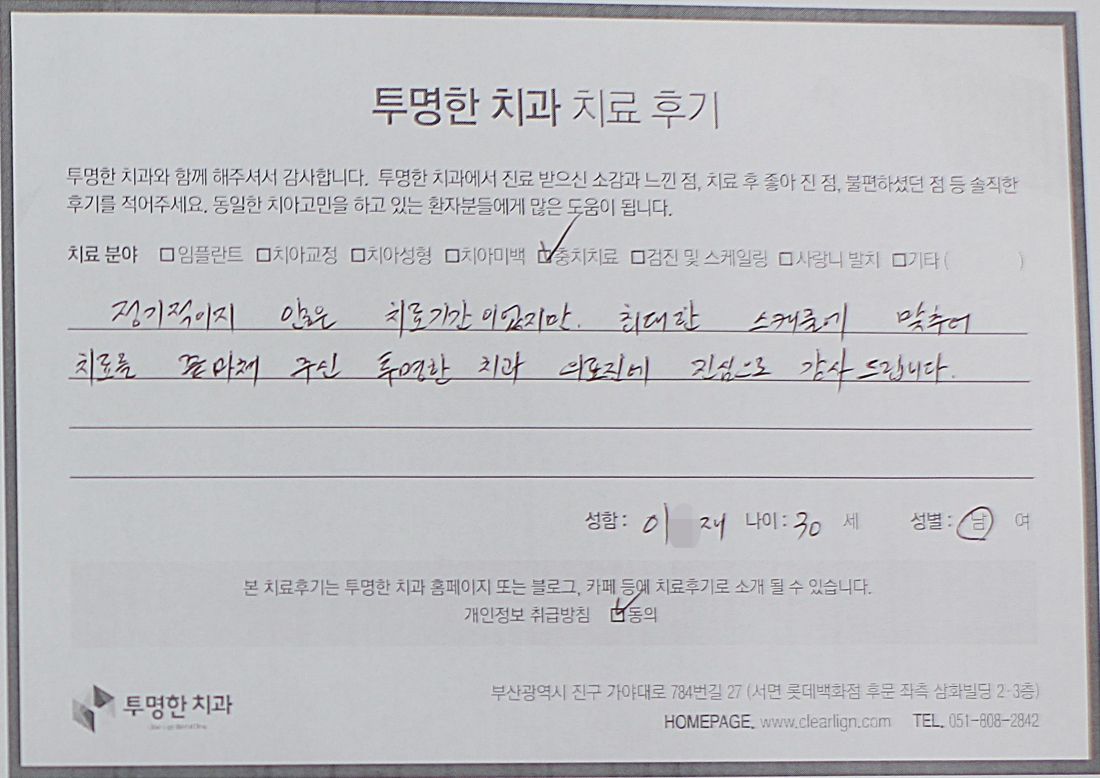 투명한 치과 치료 후기
투명한 치과와 함께 해주셔서 감사합니다. 투명한 치과에서 진료 받으신 소감과 느낀 점, 치료 후 좋아 진 점, 불편하셨던 점 등 솔직한
후기를 적어주세요. 동일한 치아고민을 하고 있는 환자분들에게 많은 도움이 됩니다.
치료 분야 □임플란트 □치아교정 □치아성형 □치아미백 ☑충치치료 □검진 및 스케일링 □사랑니 발치 □기타 ( )
정기적이지 않은 치료기간이었지만. 최대한 스케쥴에 맞추어
치료를 끝마쳐 주신 투명한 치과 의료진에 진심으로 감사 드립니다.
성함 : 이 재 나이 : 30 세 성별 : 남 여
본 치료후기는 투명한 치과 홈페이지 또는 블로그, 카페 등에 치료후기로 소개 될 수 있습니다.
개인정보 취급방침 ☑동의
투명한 치과
부산광역시 진구 가야대로 784번길 27 (서면 롯데백화점 후문 좌측 삼화빌딩 2·3층)
HOMEPAGE. www.clearlign.com TEL. 051-808-2842